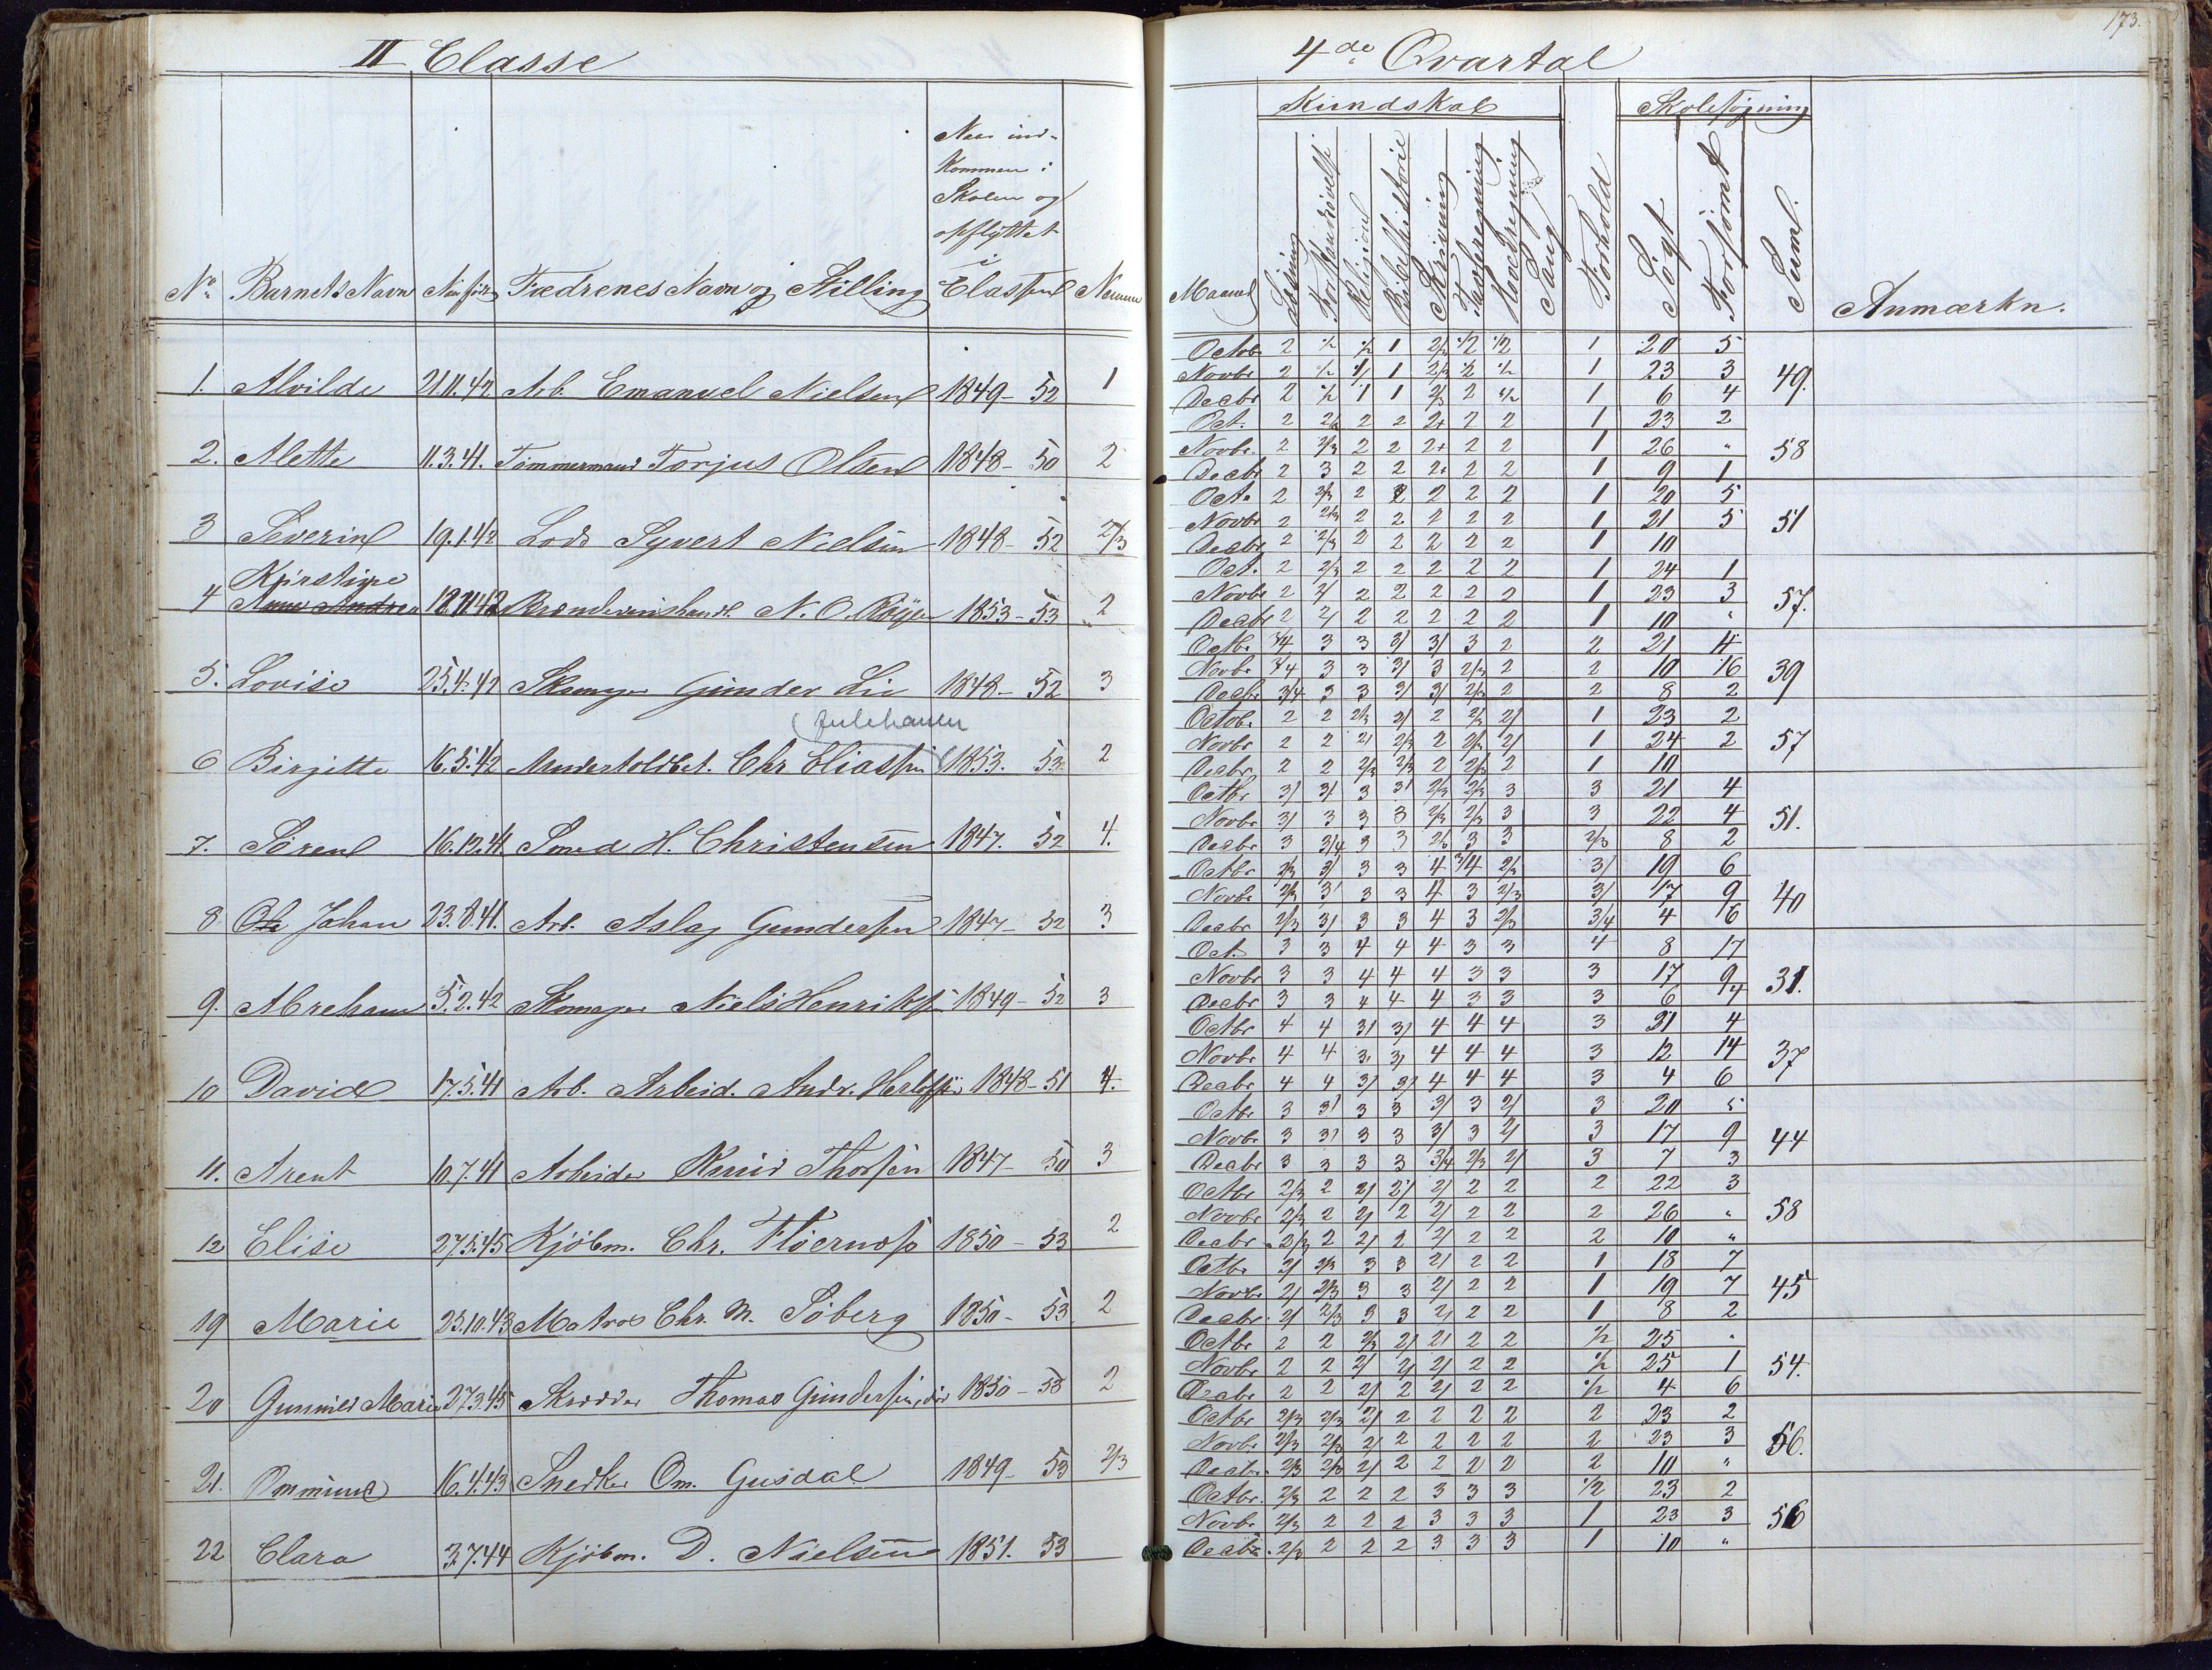 173.
II Classe
4de Qvartal
No. Barnets Navn Naar født Fædrenes Navn og Stilling Naar ind-
kommen i
Skolen og
opflyttet
i
Classen Numer
Kundskab Skolesøgning
Maaned Læsning Forstandsøvelse Religion Bibelhistorie Skrivning Tavleregning Hovedregning Sang Forhold Søgt Forsømt Suml. Anmærkn.
1. Alvilde 21.11.42 Arb. Emanuel Nielsen 1849- 52 1
Octob. 2 1/2 1/2 1 2/3 1/2 1/2 1 20 5
Novbr 2 1/2 1/ 1 2/3 1/2 1/2 1 23 3 49.
Decbr 2 1/2 1 1 2/3 2 1/2 1 6 4
2. Alette 11.3.41. Tømmermand Torjus Olsen 1848- 50 2
Oct. 2 2/3 2 2 2+ 2 2 1 23 2
Novbr. 2 2/3 2 2 2+ 2 2 1 26 " 58
Decbr 2 3 2 2 2+ 2 2 1 9 1
3 Severin 19.1.42 Lods Syvert Nielsen 1848- 52 2/3
Oct. 2 2/3 2 2 2 2 2 1 20 5
Novbr 2 2/3 2 2 2 2 2 1 21 5 51
Decbr 2 2/3 2 2 2 2 2 1 10
4 Kirstine 18.11.42 Brændeviinshandl. N. O. 1853- 53 2
Oct. 2 2/3 2 2 2 2 2 1 24 1
Novbr 2 2/ 2 2 2 2 2 1 23 3 57.
Decbr 2 2/ 2 2 2 2 2 1 10 "
5. Lovise 25.4.42 Skomager Gunder Lie 1848- 52 3
Octbr 3/4 3 3 3/ 3/ 3 2 2 21 4
Novbr 3/4 3 3 3/ 3 2/3 2 2 10 16 39
Decbr 3/4 3 3 3/ 3/ 2/3 2 2 8 2
6 Birgitte 16.5.42 Undertoldbet. Chr Eliassen 1853. 53 2
Octob. 2 2 2/3 2/ 2 2/3 2/ 1 23 2
Novbr 2 2 2/ 2/3 2 2/3 2/ 1 24 2 57
Decbr 2 2 2/3 2/3 2 2/3 2 1 10
7. Søren 16.12.41. Smed H. Christensen 1847. 52 4.
Octbr 3/ 3/ 3 3/ 2/3 2/3 3 3 21 4
Novbr 3/ 3 3 3 2/3 2/3 3 3 22 4 51.
Decbr 3 3/4 3 3 2/3 3 3 2/3 8 2
8 Johan 23.8.41. Arb. Aslag Gundersen 1847- 52 3
Octbr 2/3 3/ 3 3 4 3/4 2/3 3/ 19 6
Novbr 2/3 3/ 3 3 4 3 2/3 3/ 17 9 40
Decbr 2/3 3/ 3 3 4 3 2/3 3/4 4 6
9. Abraham 5.2.42 Skomager Niels Henriksen 1849- 52 3
Oct. 3 3 4 4 4 3 3 4 8 17
Novbr 3 3 4 4 4 3 3 3 17 9 31.
Decbr 3 3 4 4 4 3 3 3 6 4
10 David 17.5.41 Arb. Arbeid. Andr. 1848- 51 4.
Octbr 4 4 3/ 3/ 4 4 4 3 21 4
Novbr 4 4 3/ 3/ 4 4 4 3 12 14 37
Decbr 4 4 3/ 3/ 4 4 4 3 4 6
11. Arent 10.7.41 Arbeider Knud Thorsen 1847- 50 3
Octbr 3 3/ 3 3 3/ 3 2/ 3 20 5
Novbr 3 3/ 3 3 3/ 3 2/ 3 17 9 44
Decbr 3 3 3 3 3/4 2/3 2/ 3 7 3
12 Elise 27.5.45 Kjøbm. Chr. 1850- 53 2
Octbr 2/3 2 2/ 2/ 2/ 2 2 2 22 3
Novbr 2/3 2 2/ 2 2/ 2 2 2 26 " 58
Decbr 2/3 2 2/ 2 2/ 2 2 2 10 "
19 Marie 25.10.43 Matros Chr. M. Søberg 1850- 53 2
Octbr 2/ 2/3 3 3 2/ 2 2 1 18 7
Novbr 2/ 2/3 3 3 2/ 2 2 1 19 7 45
Decbr 2/ 2/3 3 3 2/ 2 2 1 8 2
20 Gunnild Marie 27.3.45 Skrædder Thomas Gundersen, 1850- 53 2
Octbr 2 2 2/3 2/ 2/ 2 2 1/2 25 "
Novbr 2 2 2/ 2/ 2/ 2 2 1/2 25 1 54.
Decbr 2 2 2/ 2 2/ 2 2 1/2 4 6
21. Ommund 16.4.43 Snedker Om. Gusdal 1849- 53 2/3
Octbr 2/3 2/3 2/ 2 2 2 2 2 23 2
Novbr 2/3 2/3 2/ 2 2 2 2 2 23 3 56.
Decbr. 2/3 2/3 2/ 2 2 2 2 2 10 "
22 Clara 3.7.44 Kjøbm. D. Nielsen 1851. 53
Octbr. 2/3 2 2 2 3 3 3 1/2 23 2
Novbr 2/3 2 2 2 3 3 3 1 23 3 56
Decbr. 2/3 2 2 2 3 3 3 1 10 "